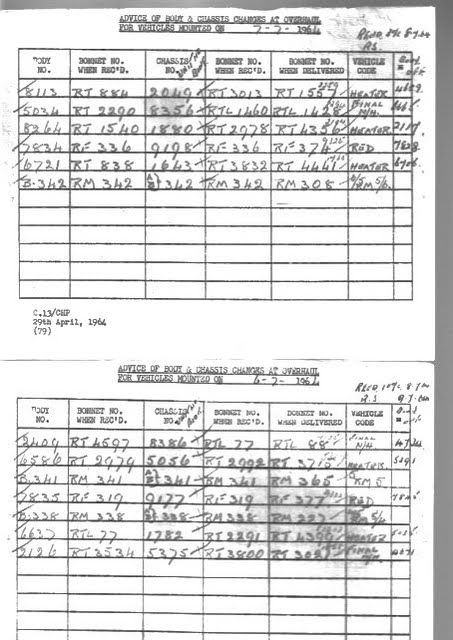 ADVICE OF BODY & CHASSIS CHANGES AT OVERHAUL
FOR VEHICLES MOUNTED ON 7-7-1964
BODY NO. BONNET NO. WHEN REC'D. CHASSIS NO. BONNET NO. WHEN REC'D. BONNET NO. WHEN DELIVERED VEHICLE CODE
8113 RT 884 2049 RT 3013 RT 1557 HEATER
5034 RT 2290 8356 RTL 1460 RTL 1428 FINAL N/H.
8264 RT 1540 1880 RT 2978 RT 4356 HEATER
7834 RF 336 9198 RF 336 RF 374 RED 7828
6721 RT 838 1643 RT 3832 RT 4441 HEATER 6706
B.342 RM 342 A/B}342 RM 342 RM 308
C.13/CHP
29th April, 1964
(79)
ADVICE OF BODY & CHASSIS CHANGES AT OVERHAUL
FOR VEHICLES MOUNTED ON 6-7-1964
BODY NO. BONNET NO. WHEN REC'D. CHASSIS NO. BONNET NO. WHEN REC'D. BONNET NO. WHEN DELIVERED VEHICLE CODE
2409 RT 4597 8386 RTL 77 RTL 88 FINAL N/H
6586 RT 2979 5056 RT 2992 RT 3715 HEATER
B.341 RM 341 A/B}341 RM 341 RM 365
7835 RF 319 9177 RF 319 RF 377 RED
B.338 RM 338 338 RM 338 RM 227
6637 RTL 77 1782 RT 2291 RT 4399 HEATER
2126 RT 3534 5375 RT 3800 FINAL